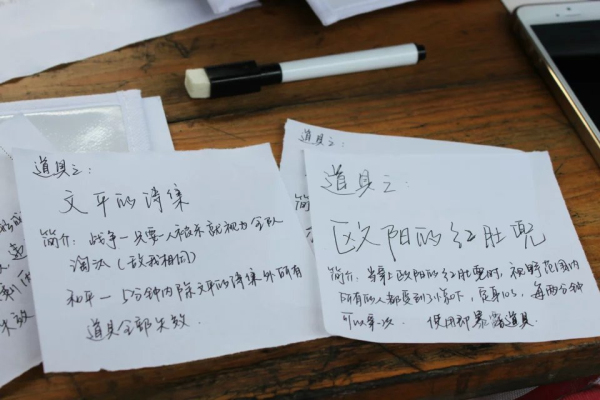 道具之:
文平的诗集
简介: 战争一只要一人被杀就视为全队
淘汰(敌我相同)
和平一 5分钟内除文平的诗集外所有
道具全部失效.
道具之:
道具之:
欧阳的红肚兜
简介: 当亮欧阳的红肚兜时, 视野范围内
所有的人都要到
定身10s, 每两分钟
可以拿一次. 使用即暴露道具.
简